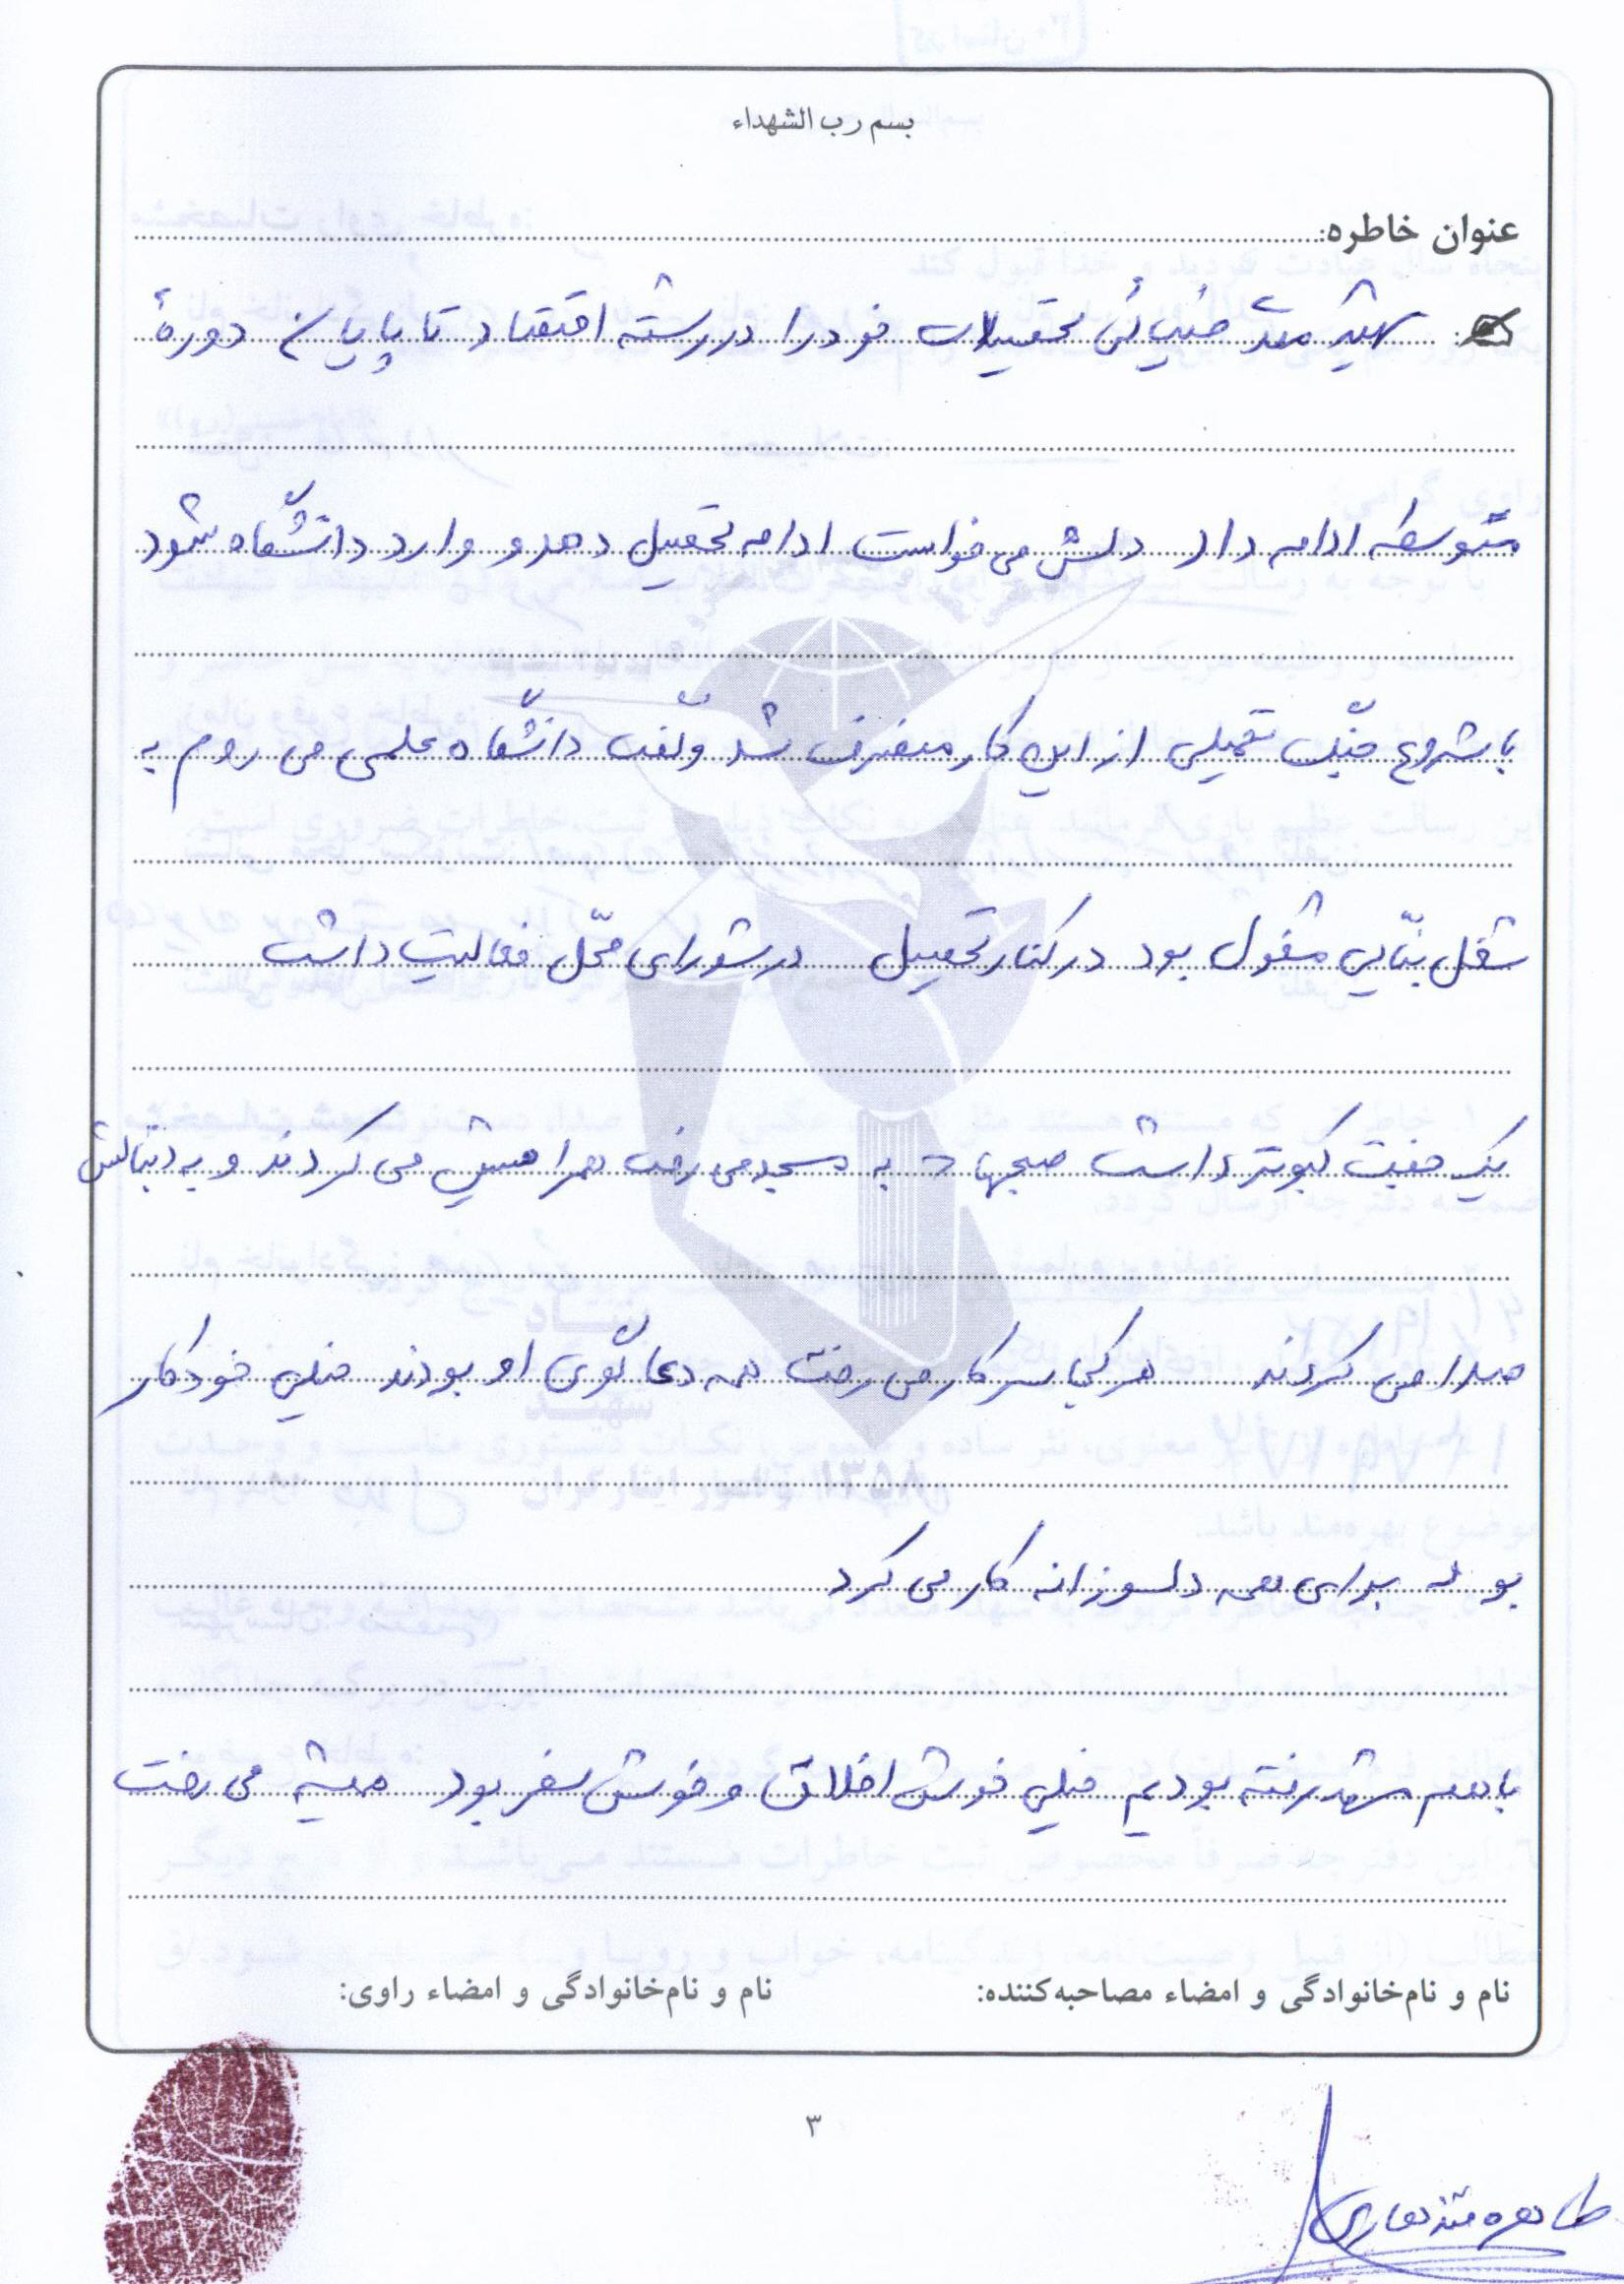 بسم رب الشهداء
عنوان خاطره:
شهید محمد ضیائی تحصیلات خود را در رشته اقتصاد تا پایان دورهٔ
متوسطه ادامه داد دلش می خواست ادامه تحصیل دهد و وارد دانشگاه شود
با شروع جنگ تحمیلی از این کار منصرف شد و گفت دانشگاه علمی می روم به
شغل بنّایی مشغول بود در کنار تحصیل در شورای محّل فعالیت داشت
یک جفت کبوتر داشت صبحها به مسجد می رفت همراهیش می کردند و به دنبالش
صدا می کردند هر کجا سر کار می رفت همه دعا گوی او بودند خیلی خودکار
بود برای همه دلسوزانه کار می کرد
با هم مشهد رفته بودیم خیلی خوش اخلاق و خوش سفر بود همیشه می رفت
نام و نام‌خانوادگی و امضاء مصاحبه‌کننده:
نام و نام‌خانوادگی و امضاء راوی:
۳
طاهره قندهاری